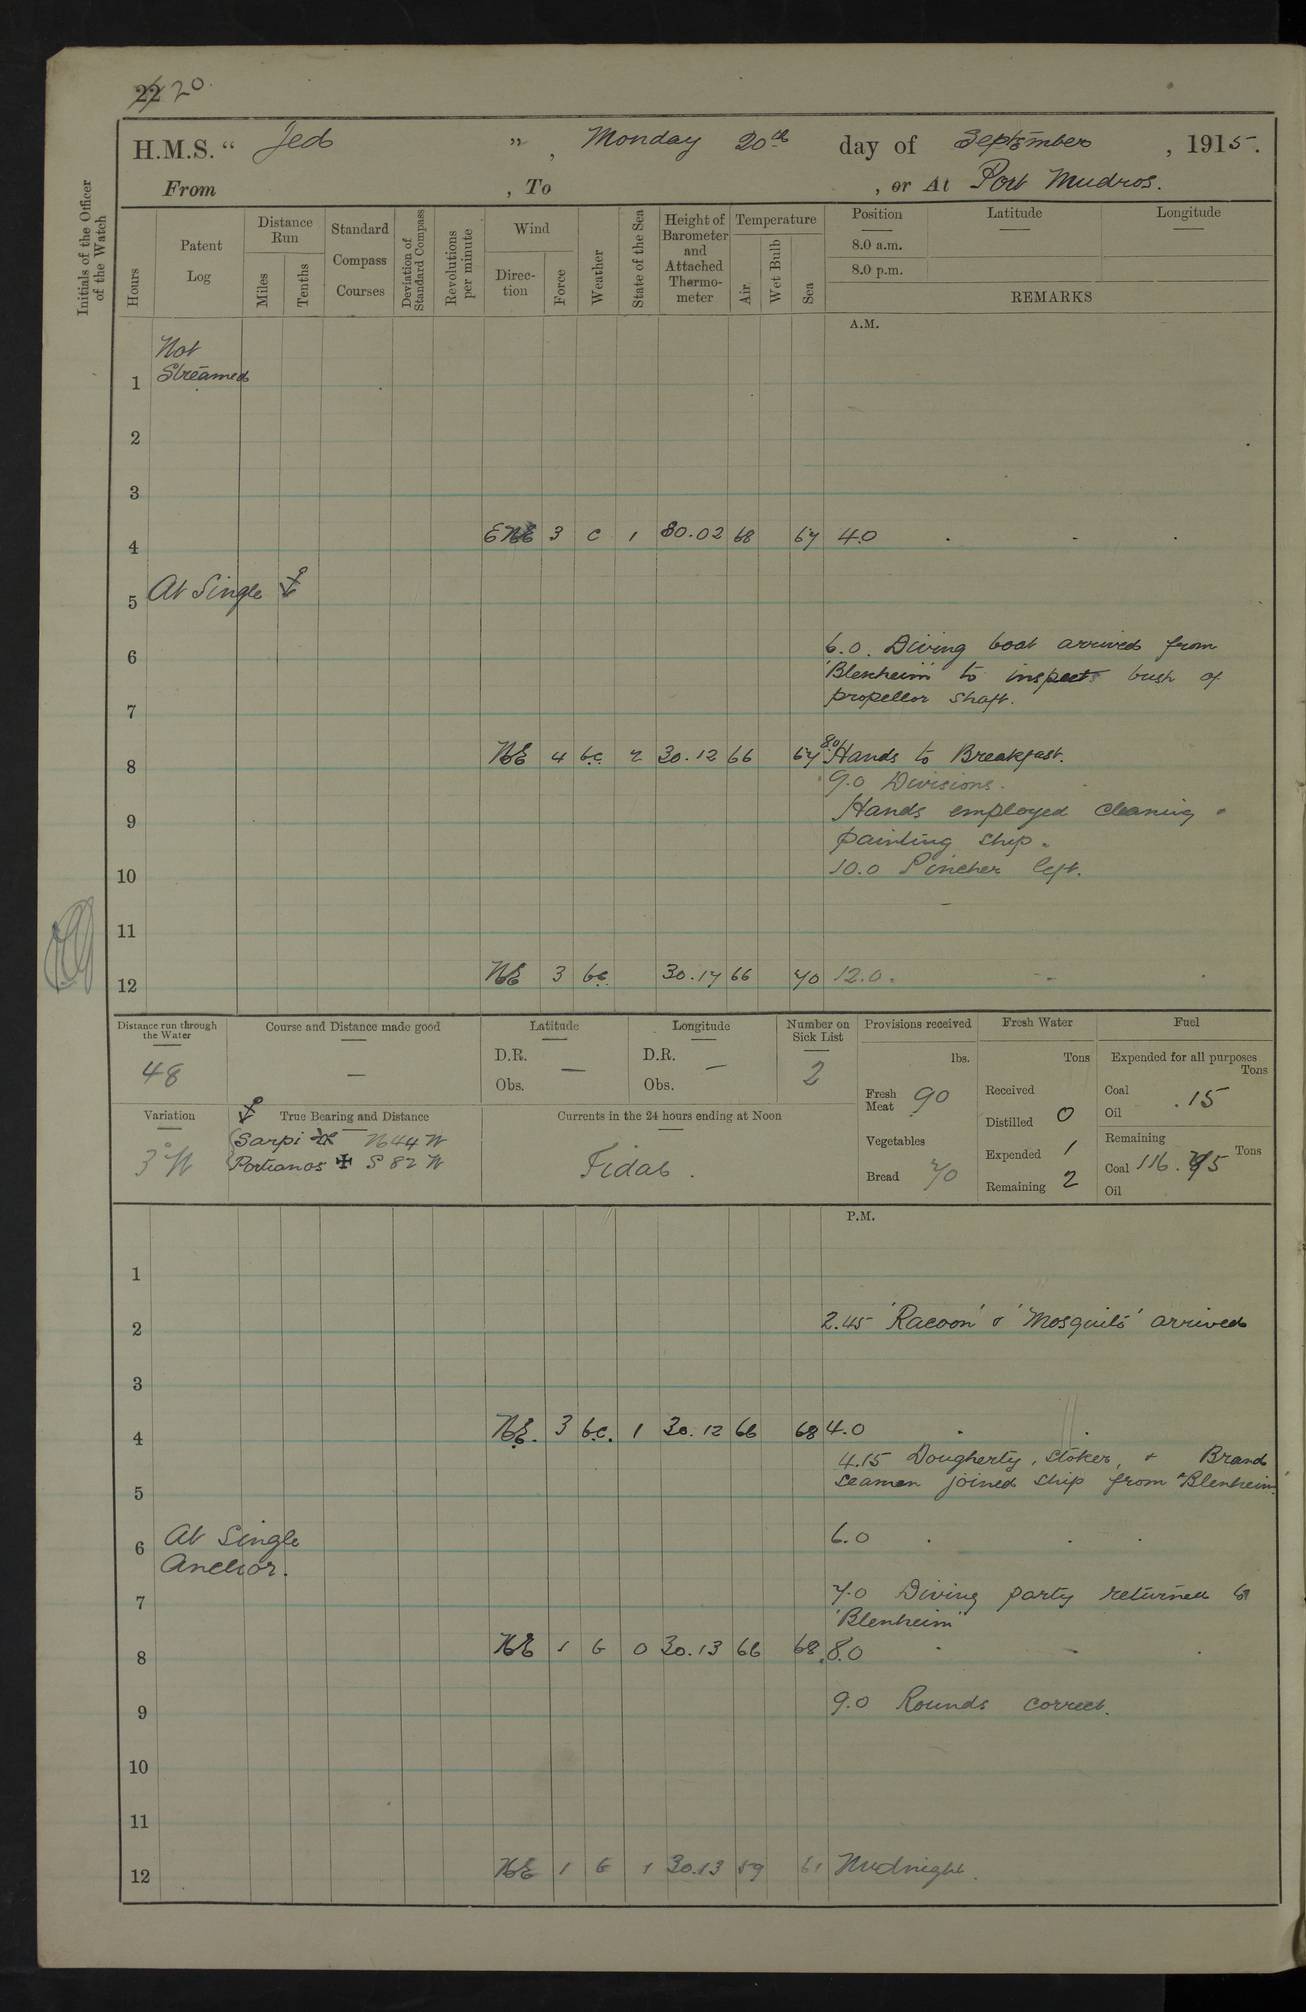 22 20.
H.M.S. “ Jed ” , Monday 20th day of September , 1915.
From , To , or At Port Mudros.
Initials of the Officer of the Watch
Hours
Patent Log
Distance Run
Miles
Tenths
Standard Compass Courses
Deviation of Standard Compass
Revolutions per minute
Wind
Direction
Force
Weather
State of the Sea
Height of Barometer and Attached Thermometer
Temperature
Air
Wet Bulb
Sea
Position Latitude Longitude
8.0 a.m.
8.0 p.m.
REMARKS
A.M.
Not
1 Streamed
2
3
4 ENE 3 c 1 30.02 68 67 4.0
5 At Single
6 6.0. Diving boat arrived from
'Blenheim' to inspect bush of
7 propellor shaft.
8 NE 4 b.c. 2 30.12 66 67 8.0 Hands to Breakfast.
9.0 Divisions.
9 Hands employed cleaning &
painting ship.
10 10.0 Pincher left.
11
12 NE 3 b.c. 30.17 66 70 12.0.
Distance run through the Water
48
Course and Distance made good
—
Latitude
D.R. —
Obs.
Longitude
D.R. —
Obs.
Number on Sick List
2
Provisions received
lbs.
Fresh Meat 90
Vegetables
Bread 70
Fresh Water
Tons
Received
Distilled 0
Expended 1
Remaining 2
Fuel
Expended for all purposes
Tons
Coal .15
Oil
Remaining
Tons
Coal 116.75
Oil
Variation
3°W
True Bearing and Distance
Sarpi N44W
Portianos ✠ S 82 W
Currents in the 24 hours ending at Noon
Tidal.
P.M.
1
2 2.45 'Racoon' & 'Mosquito' arrived
3
4 NE. 3 b.c. 1 30.12 66 68 4.0
4.15 Dougherty, Stoker, & Brand
5 seaman joined ship from "Blenheim"
6 At Single 6.0
Anchor.
7 7.0 Diving party returned to
'Blenheim'
8 NE 1 b 0 30.13 66 68 8.0
9 9.0 Rounds correct.
10
11
12 NE 1 b 1 30.13 59 61 Midnight.